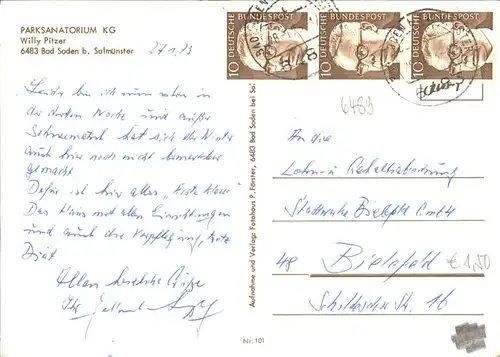 PARKSANATORIUM KG
Willy Pitzer
6483 Bad Soden b. Salmünster
27.1.73
Leider bin ich nun schon in
der dritten Woche und außer
Schneematsch hat sich der Winter
auch hier noch nicht bemerkbar
gemacht
Dafür ist hier alles
Das Haus mit allen Einrichtungen
und auch die Verpflegung, trotz
Diät
Allen herzliche Grüße
Ihr
Aufnahme und Verlag: Fotohaus P. Förster, 6483 Bad Soden bei Sal
Nr. 101
DEUTSCHE BUNDESPOST
10
DEUTSCHE BUNDESPOST
10
DEUTSCHE BUNDESPOST
10
6483
An die
Lohn- u. Gehaltsabteilung
Stadtwerke Bielefeld GmbH
48 Bielefeld
Schildescher Str. 16
€ 1,50